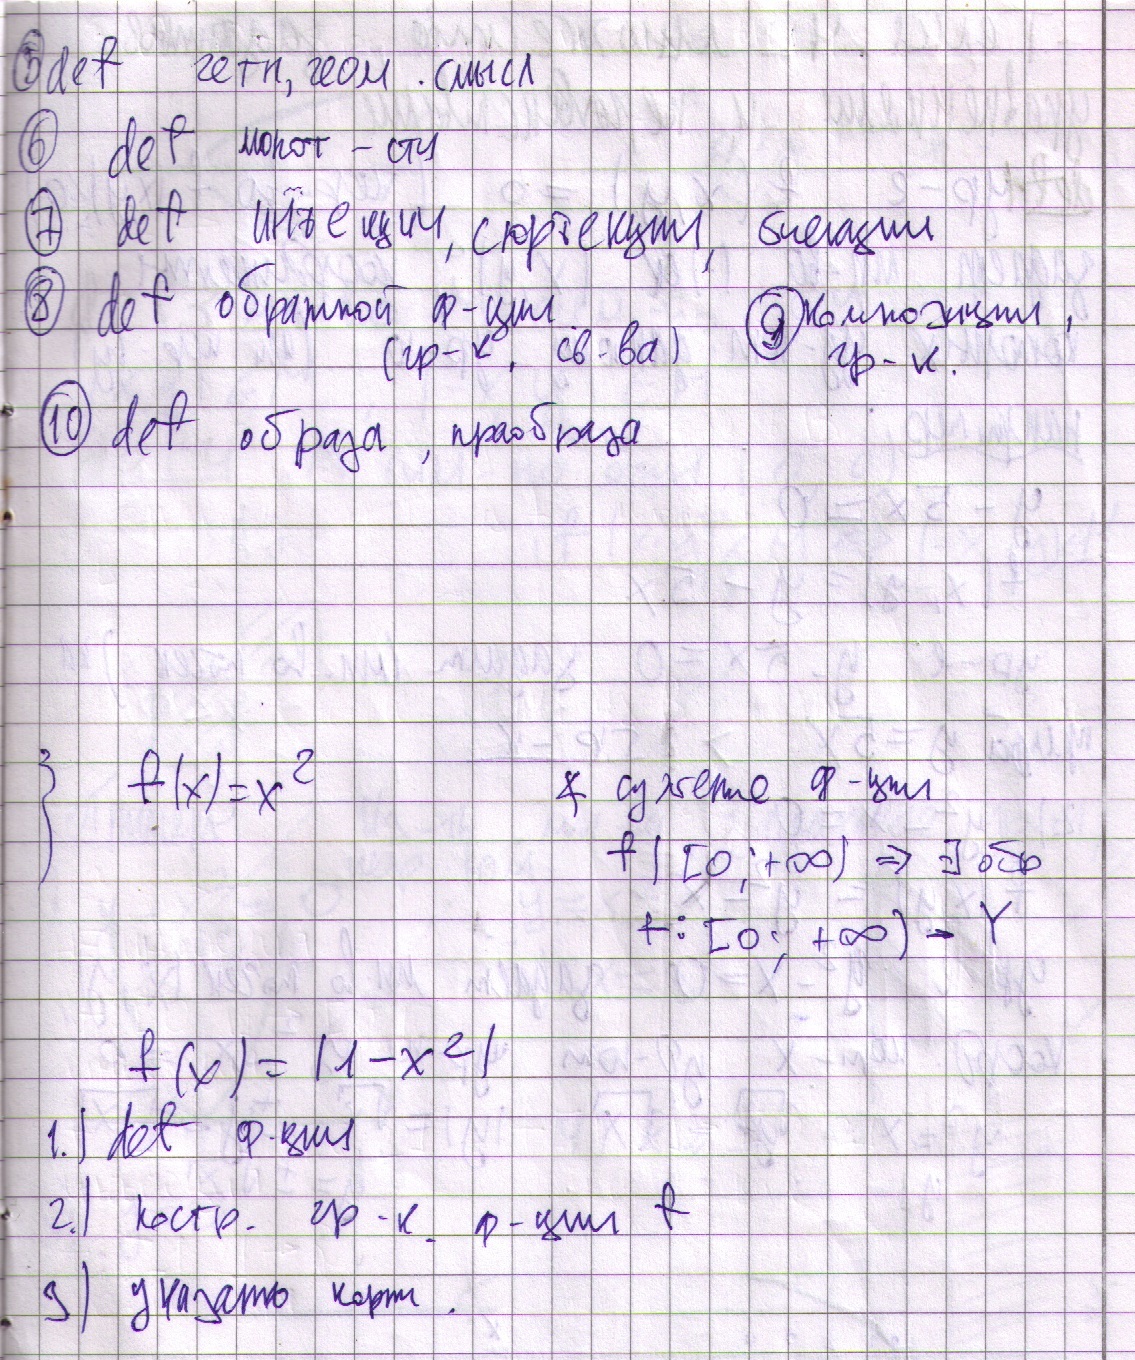 ⑤ def четн, геом. смысл
⑥ def монот-сти
⑦ def инъекции, сюръекции, биекции
⑧ def обратной ф-ции
(гр-к, св-ва)
⑨ Композиции,
гр-к.
⑩ def образа, прообраза
} f(x)=x²
сужение ф-ции
f | [0;+∞) ⇒ ∃ обр
f: [0;+∞) → Y
f(x)=|1-x²|
1.) def ф-ции
2.) постр. гр-к ф-ции f
3) указать